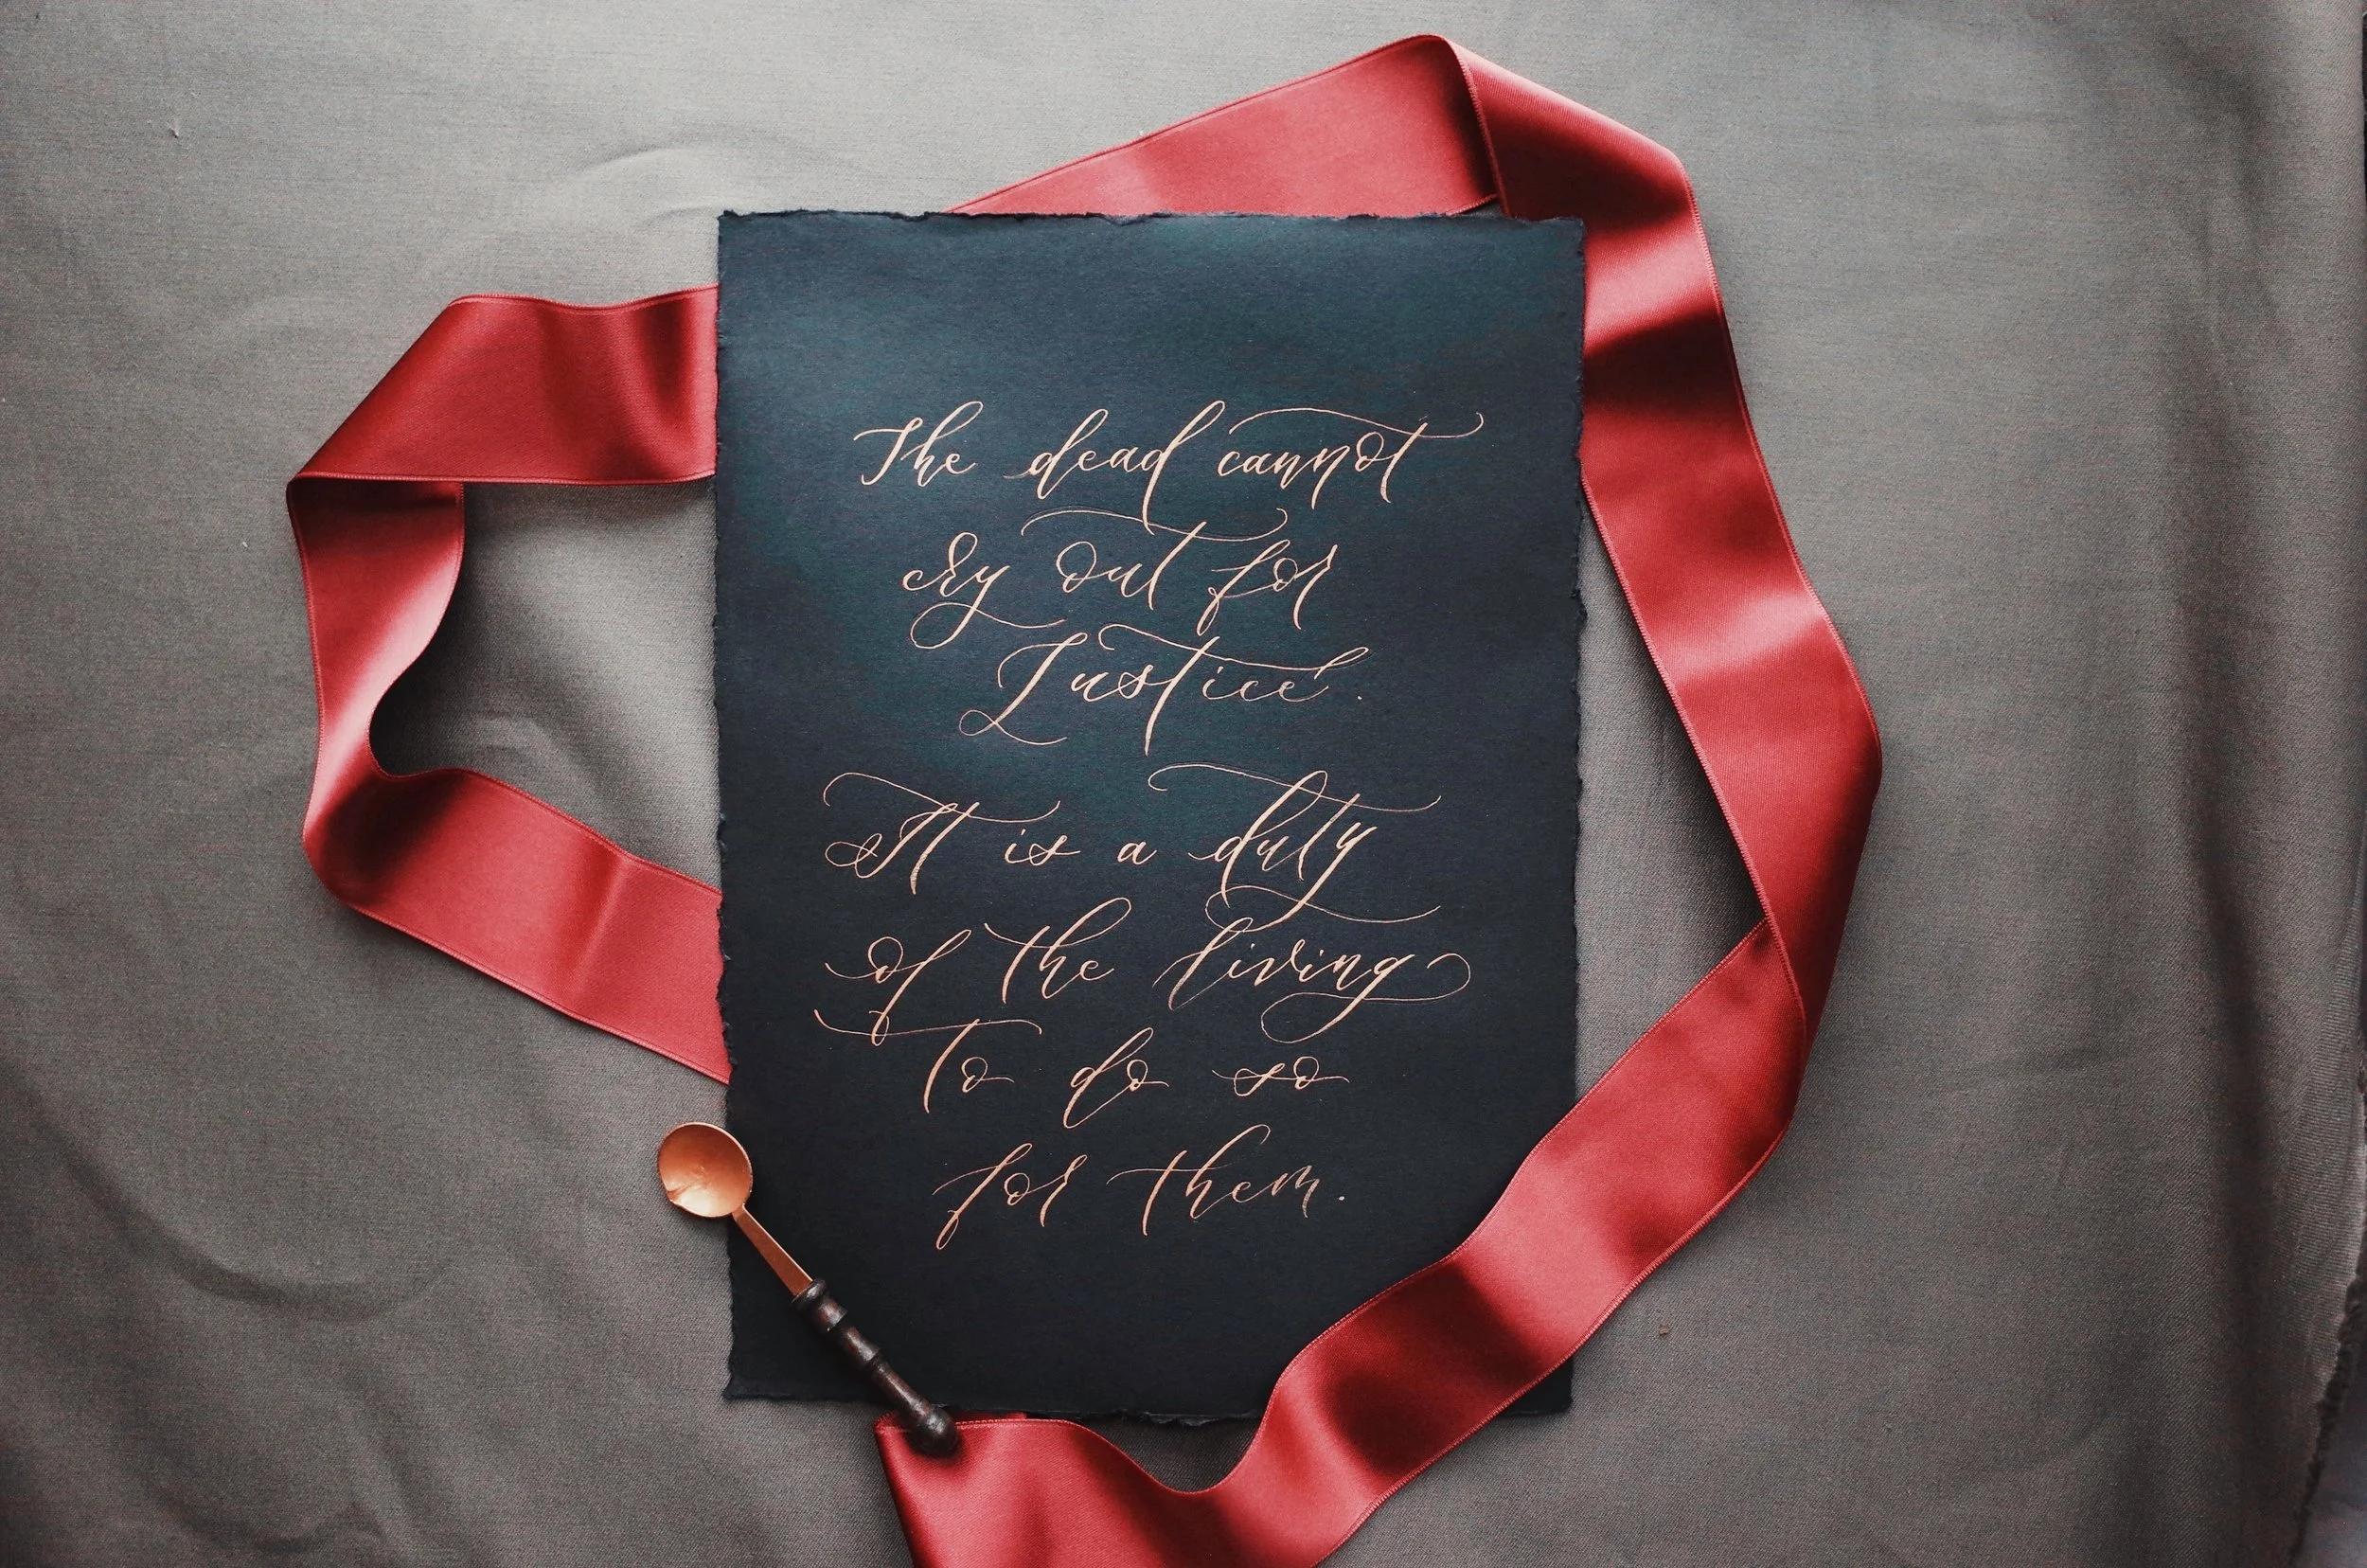 The dead cannot
cry out for
Justice.
It is a duty
of the living
to do so
for them.